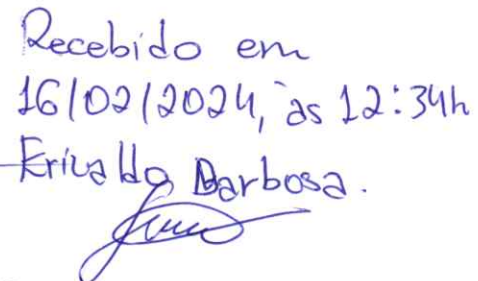 Recebido em
16/02/2024, às 12:34h
Erivaldo Barbosa.